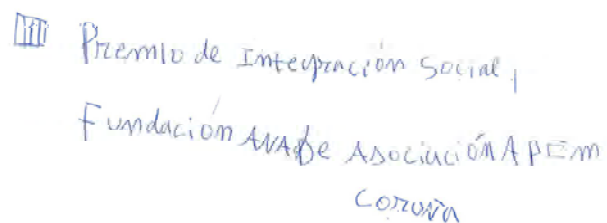 III Premio de Integración Social,
Fundación ANADE Asociación APEM
Coruña